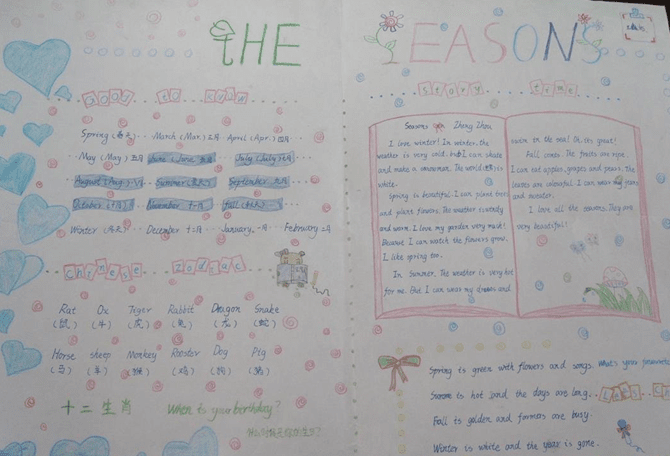 THE SEASONS
good to know
Spring (春天) March (Mar.) 三月 April (Apr.) 四月
May (May) 五月 June (June 六月) July (July) 七月
August (Aug.) 八月 Summer (夏天) September 九月
October 十月 November 十一月 fall (秋天)
Winter (冬天) December 十二月 January, 一月 February 二月
Chinese zodiac
Rat Ox Tiger Rabbit Dragon Snake
(鼠) (牛) (虎) (兔) (龙) (蛇)
Horse sheep Monkey Rooster Dog Pig
(马) (羊) (猴) (鸡) (狗) (猪)
十二生肖 When is your birthday?
story time
Seasons Zhang Zhan
I love winter! In winter, the
weather is very cold. but I can skate
and make a snowman. The world is in
white.
Spring is beautiful. I can plant trees
and plant flowers. The weather is windy
and warm. I love my garden very much!
Because I can watch the flowers grow.
I like spring too.
In Summer. The weather is very hot
for me. But I can wear my dresses and
swim in the sea! Oh, its great!
Fall comes. The fruits are ripe.
I can eat apples, grapes and pears. The
leaves are colourful. I can wear my jeans
and sweater.
I love all the seasons. They are
very beautiful!
Spring is green with flowers and songs. What's your favourite
Summer is hot and the days are long.
Fall is golden and farmers are busy.
Winter is white and the year is gone.